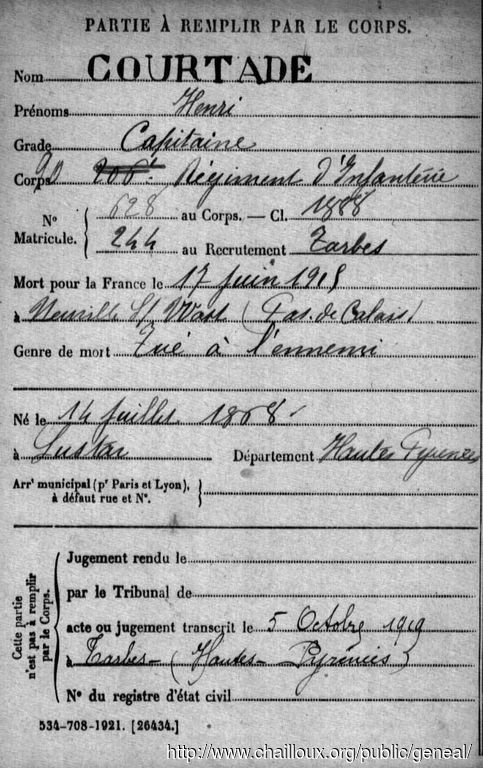 PARTIE À REMPLIR PAR LE CORPS.
Nom COURTADE
Prénoms Henri
Grade Capitaine
Corps 90 206e Régiment d'Infanterie
N° Matricule. { 628 au Corps. — Cl. 1888
244 au Recrutement Tarbes
Mort pour la France le 17 juin 1915
à Neuville St Waast (Pas. de Calais)
Genre de mort Tué à l'ennemi
Né le 14 juillet 1868
à Lustar Département Hautes Pyrénées
Arrt municipal (pr Paris et Lyon),
à défaut rue et N°.
Cette partie n'est pas à remplir par le Corps.
Jugement rendu le
par le Tribunal de
acte ou jugement transcrit le 5 Octobre 1919
à Tarbes - (Hautes - Pyrénées)
N° du registre d'état civil
534-708-1921. [26434.]
http://www.chailloux.org/public/geneal/